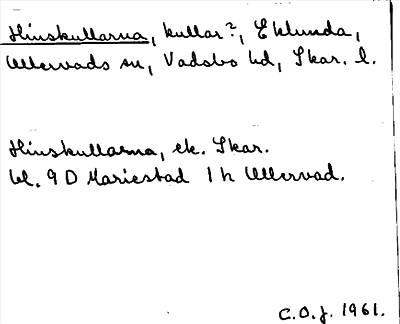 Hinskullarna, kullar?, Eklunda,
Ullervads sn, Vadsbo hd, Skar. l.
Hinskullarna, ek. Skar.
bl. 9 D Mariestad 1 h Ullervad.
C.O.J. 1961.